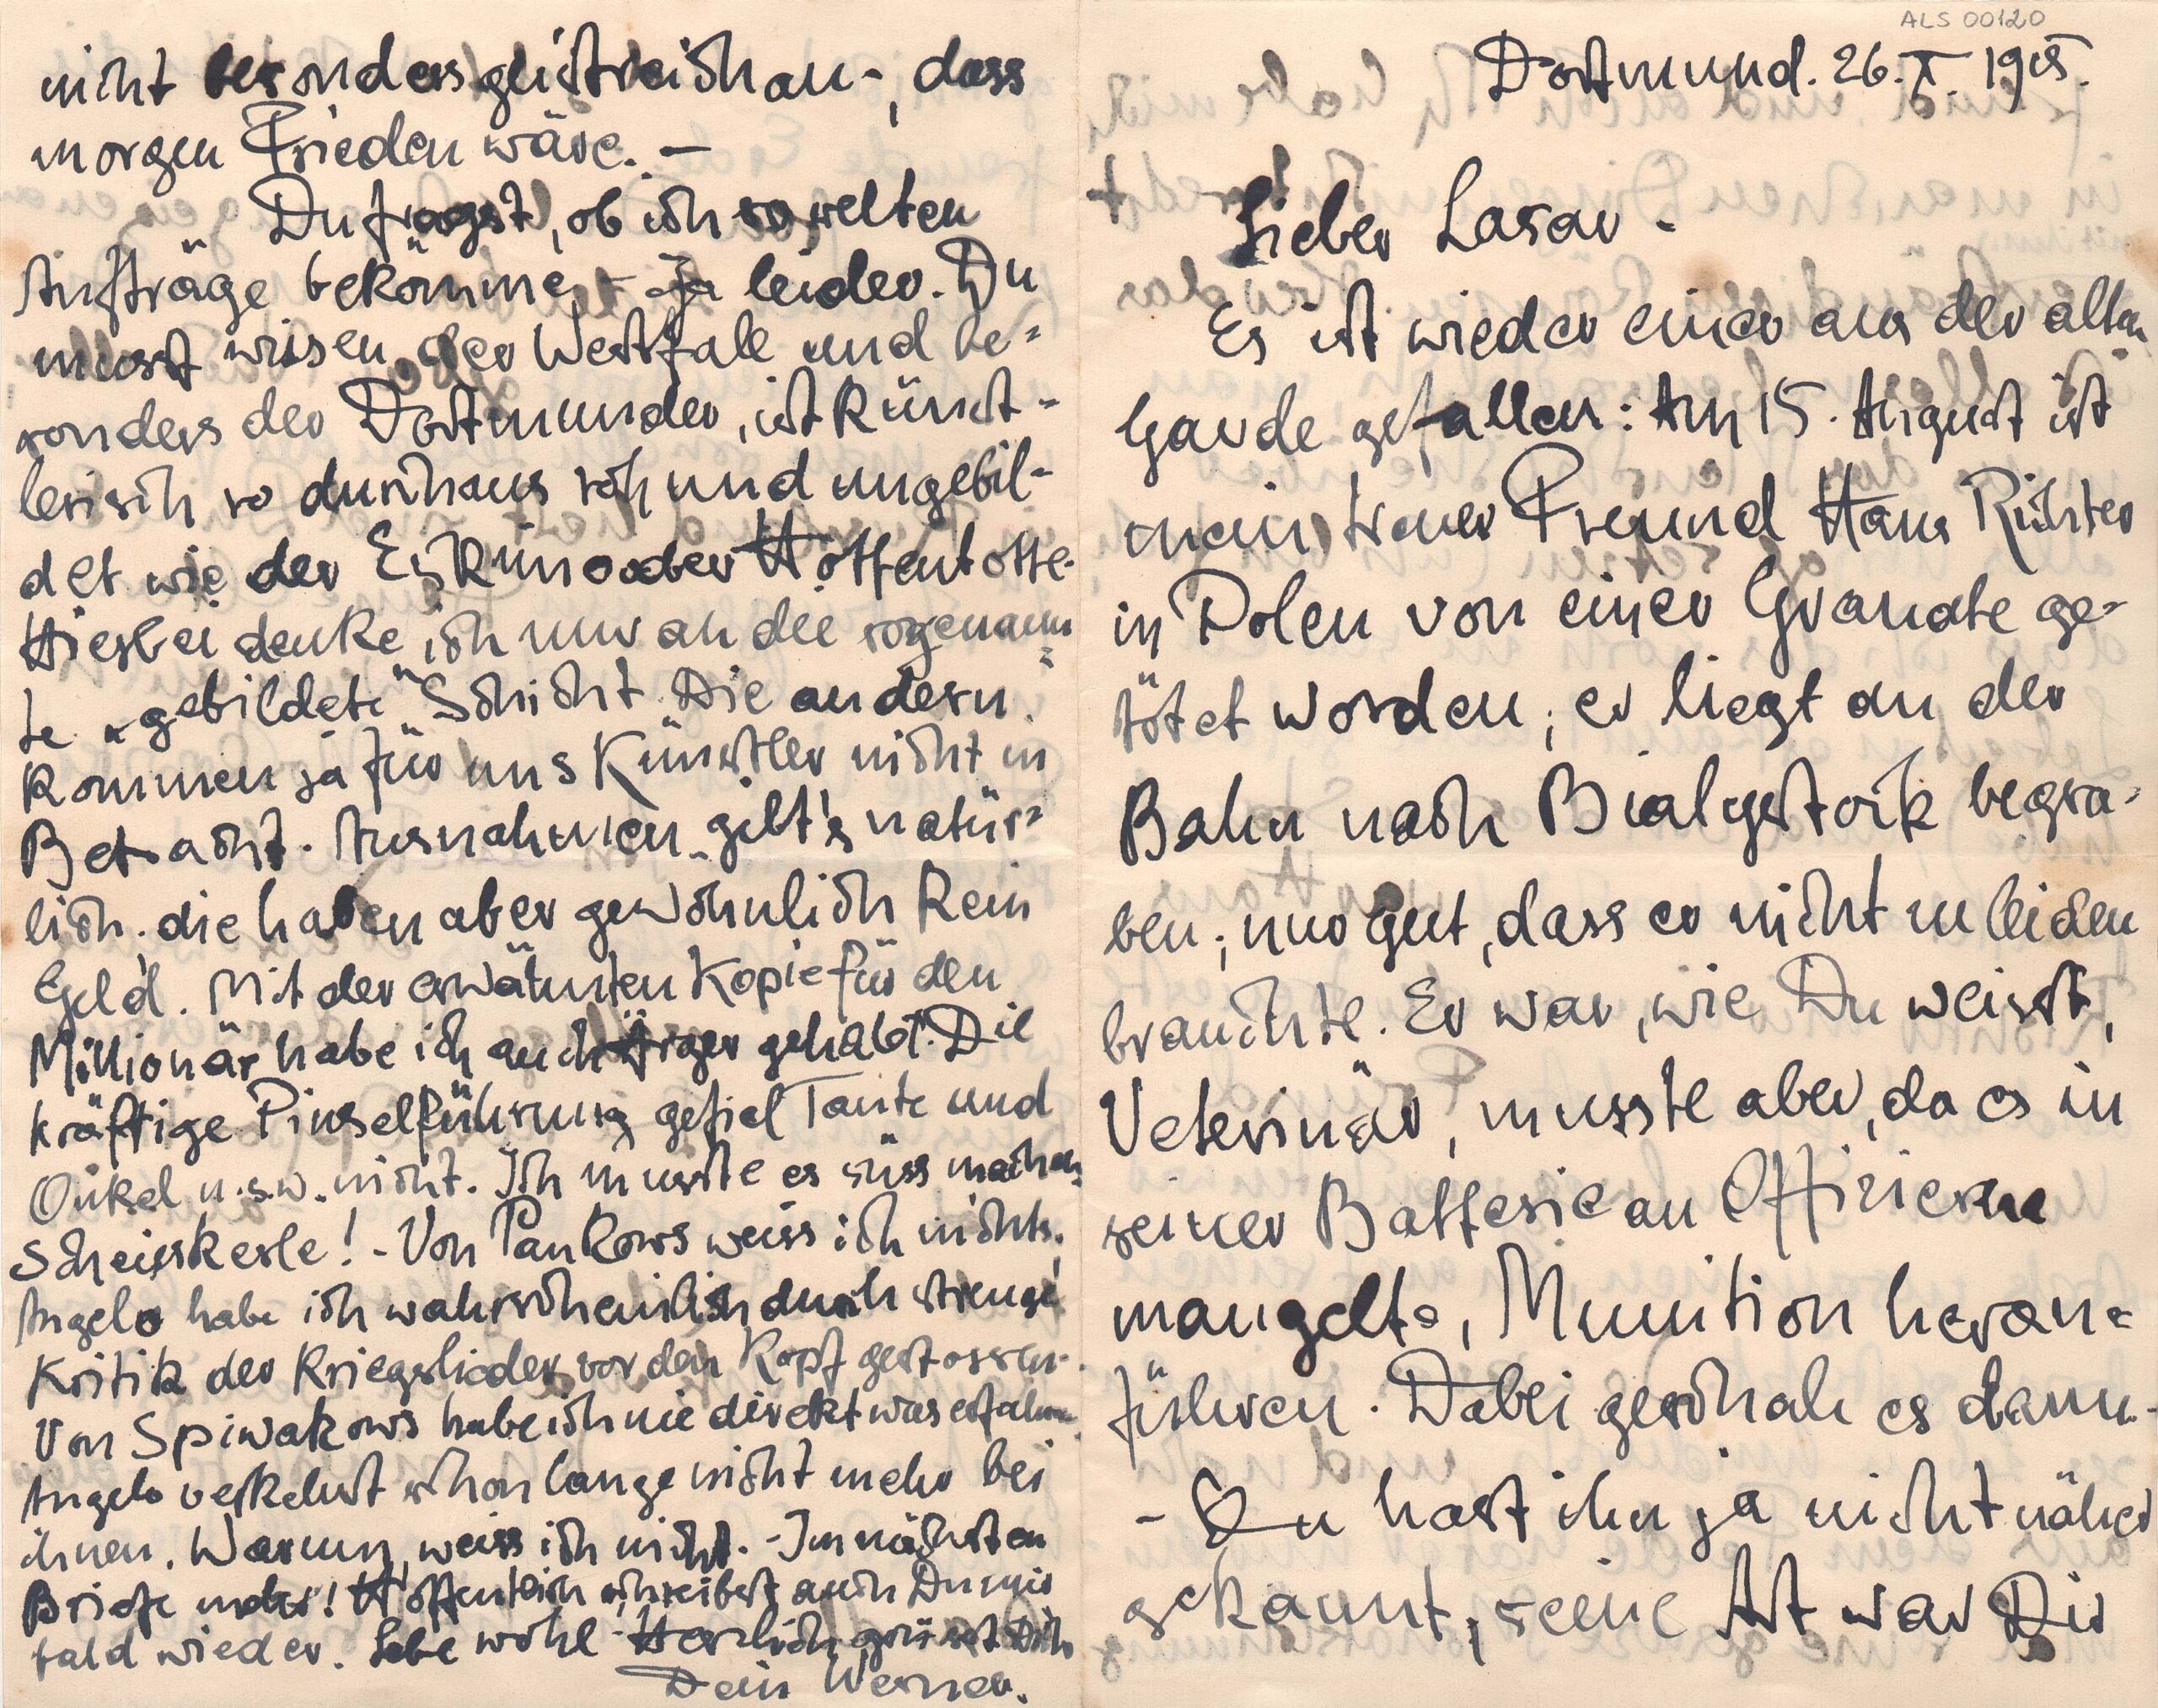 ALS 00120
Dortmund. 26. X. 1915.
Lieber Lasar -
Es ist wieder einer aus der alten
Garde gefallen: Am 15. August ist
mein treuer Freund Hans Richter
in Polen von einer Granate ge-
tötet worden; er liegt an der
Bahn nach Bialystock begra-
ben; nur gut, dass er nicht zu leiden
brauchte. Er war, wie Du weisst,
Veterinär, musste aber, da es in
seiner Batterie an Offizieren
mangelte, Munition heran-
führen. Dabei geschah es dann.
- Du hast ihn ja nicht näher
gekannt, seine Art war Dir
nicht besonders geistreich an -, dass
morgen Frieden wäre. -
Du fragst, ob ich so selten
Aufträge bekomme, - Ja leider. Du
musst wissen, der Westfale und be-
sonders der Dortmunder, ist künst-
lerisch so durchaus roh und ungebil-
det wie der Eskimo oder Hottentotte.
Hierbei denke ich nur an die sogenann-
te „gebildete" Schicht. Die andern
kommen ja für uns Künstler nicht in
Betracht. Ausnahmen gibt's natür-
lich. die haben aber gewöhnlich kein
Geld. Mit der erwähnten Kopie für den
Millionär habe ich auch Ärger gehabt. Die
kräftige Pinselführung gefiel Tante und
Onkel u.s.w. nicht. Ich musste es süss machen.
Scheisskerle! - Von Pankows weiss ich nichts.
Angelo habe ich wahrscheinlich durch strenge
Kritik der Kriegslieder vor den Kopf gestossen.
Von Spiwakows habe ich nie direkt was erfahren.
Angelo verkehrt schon lange nicht mehr bei
ihnen. Warum, weiss ich nicht. - Im nächsten
Briefe mehr! Hoffentlich schreibst auch Du mir
bald wieder. Lebe wohl - Herzlich grüsst Dich
Dein Werner.